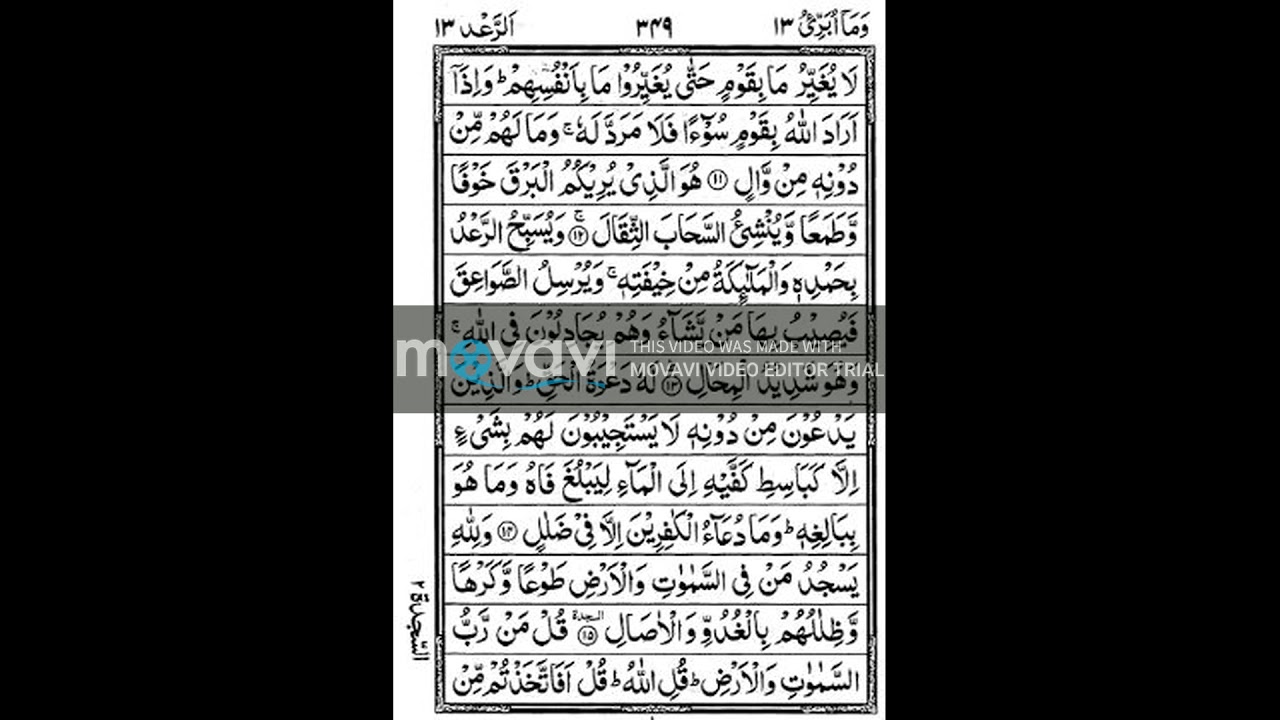 وَمَآ اُبَرِّئُ ١٣
٣٤٩
اَلرَّعْد ١٣
لَا يُغَيِّرُ مَا بِقَوْمٍ حَتّٰى يُغَيِّرُوْا مَا بِاَنْفُسِهِمْ ؕ وَاِذَآ
اَرَادَ اللّٰهُ بِقَوْمٍ سُوْٓءًا فَلَا مَرَدَّ لَهٗ ۚ وَمَا لَهُمْ مِّنْ
دُوْنِهٖ مِنْ وَّالٍ ۝١١ هُوَ الَّذِىْ يُرِيْكُمُ الْبَرْقَ خَوْفًا
وَّطَمَعًا وَّيُنْشِئُ السَّحَابَ الثِّقَالَ ۝١٢ۚ وَيُسَبِّحُ الرَّعْدُ
بِحَمْدِهٖ وَالْمَلٰٓئِكَةُ مِنْ خِيْفَتِهٖ ۚ وَيُرْسِلُ الصَّوَاعِقَ
فَيُصِيْبُ بِهَا مَنْ يَّشَآءُ وَهُمْ يُجَادِلُوْنَ فِى اللّٰهِ ۚ
وَهُوَ شَدِيْدُ الْمِحَالِ ۝١٣ لَهٗ دَعْوَةُ الْحَقِّ ؕ وَالَّذِيْنَ
movavi
THIS VIDEO WAS MADE WITH
MOVAVI VIDEO EDITOR TRIAL
يَدْعُوْنَ مِنْ دُوْنِهٖ لَا يَسْتَجِيْبُوْنَ لَهُمْ بِشَىْءٍ
اِلَّا كَبَاسِطِ كَفَّيْهِ اِلَى الْمَآءِ لِيَبْلُغَ فَاهُ وَمَا هُوَ
بِبَالِغِهٖ ؕ وَمَا دُعَآءُ الْكٰفِرِيْنَ اِلَّا فِىْ ضَلٰلٍ ۝١٤ وَلِلّٰهِ
يَسْجُدُ مَنْ فِى السَّمٰوٰتِ وَالْاَرْضِ طَوْعًا وَّكَرْهًا
وَّظِلٰلُهُمْ بِالْغُدُوِّ وَالْاٰصَالِ السجدة ۝١٥ قُلْ مَنْ رَّبُّ
السَّمٰوٰتِ وَالْاَرْضِ ؕ قُلِ اللّٰهُ ؕ قُلْ اَفَاتَّخَذْتُمْ مِّنْ
السَّجدة ٢